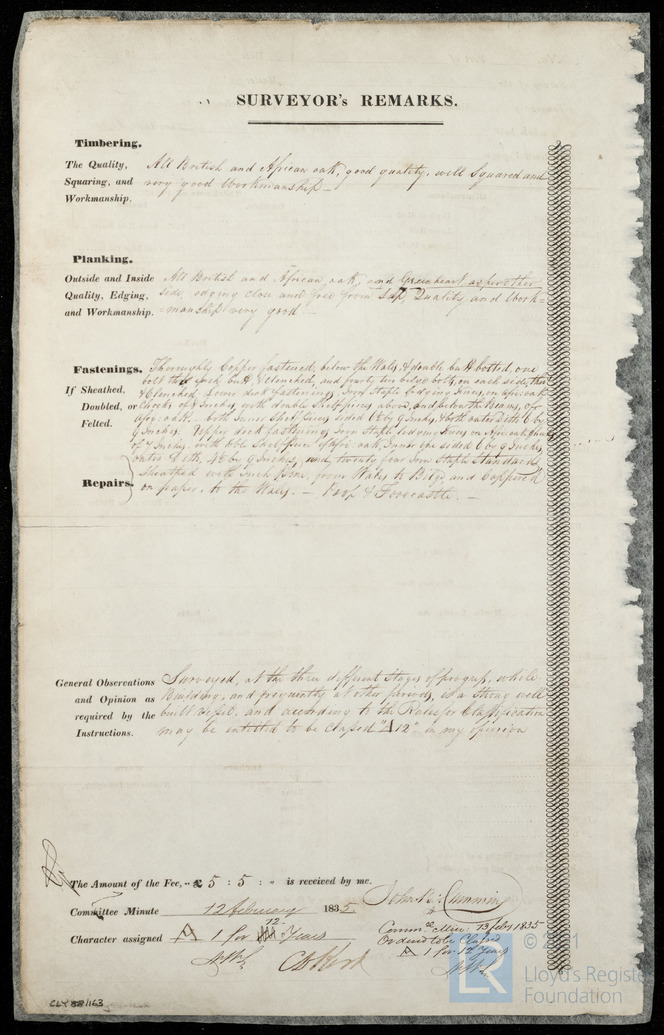 SURVEYOR's REMARKS.
Timbering.
The Quality, Squaring, and Workmanship.
All British and African oak, good quality, well Squared and
very good Workmanship –
Planking.
Outside and Inside Quality, Edging, and Workmanship.
All British and African oak, and Greenheart as per other
side, edging close and free from Sap, Quality and Work=
=manship very good –
Fastenings.
If Sheathed, Doubled, or Felted.
Thoroughly Copper fastened, below the Wales, & double butt bolted, one
bolt thro' each butt & clenched, and forty two bilge bolts, on each side, thro'
& Clenched. Lower deck fastenings, Iron Staple Lodging Knees, on afri: oak
Chocks of 7 Inches, with double Shelf pieces above and below the Beams, of
afri: oak. both Inner Shelf pieces sided 8 by 9 Inches, & both outer Ditto 6 by
9 Inches. Upper deck fastenings Iron Staple Lodging Knees on Afri: oak Chocks
of 7 Inches, with dble Shelf piece of afri: oak, Inner one sided 6 by 9 Inches,
outer Ditto, 4 by 9 Inches, and twenty four Iron Staple Standards,
Repairs.
Sheathed with Inch Pine, from Wales to Bilge, and Coppered
on paper, to the Wales. – Poop & Forecastle. –
General Observations and Opinion as required by the Instructions.
Surveyed, at the three different Stages of progress, while
Building, and frequently at other periods, is a strong well
built Vessel, and according to the Rules for Classification
may be entitled to be Classed "A 12" in my opinion
The Amount of the Fee, £ 5 : 5 : „ is received by me.
John R: Cumming
Committee Minute 12 february 1835
Character assigned A 1 for 12 Years
Commee Min: 13 feby 1835
Ordered to be Classed
A 1 for 12 Years
CLY 88/163
© 2021
LR
Lloyd's Register
Foundation